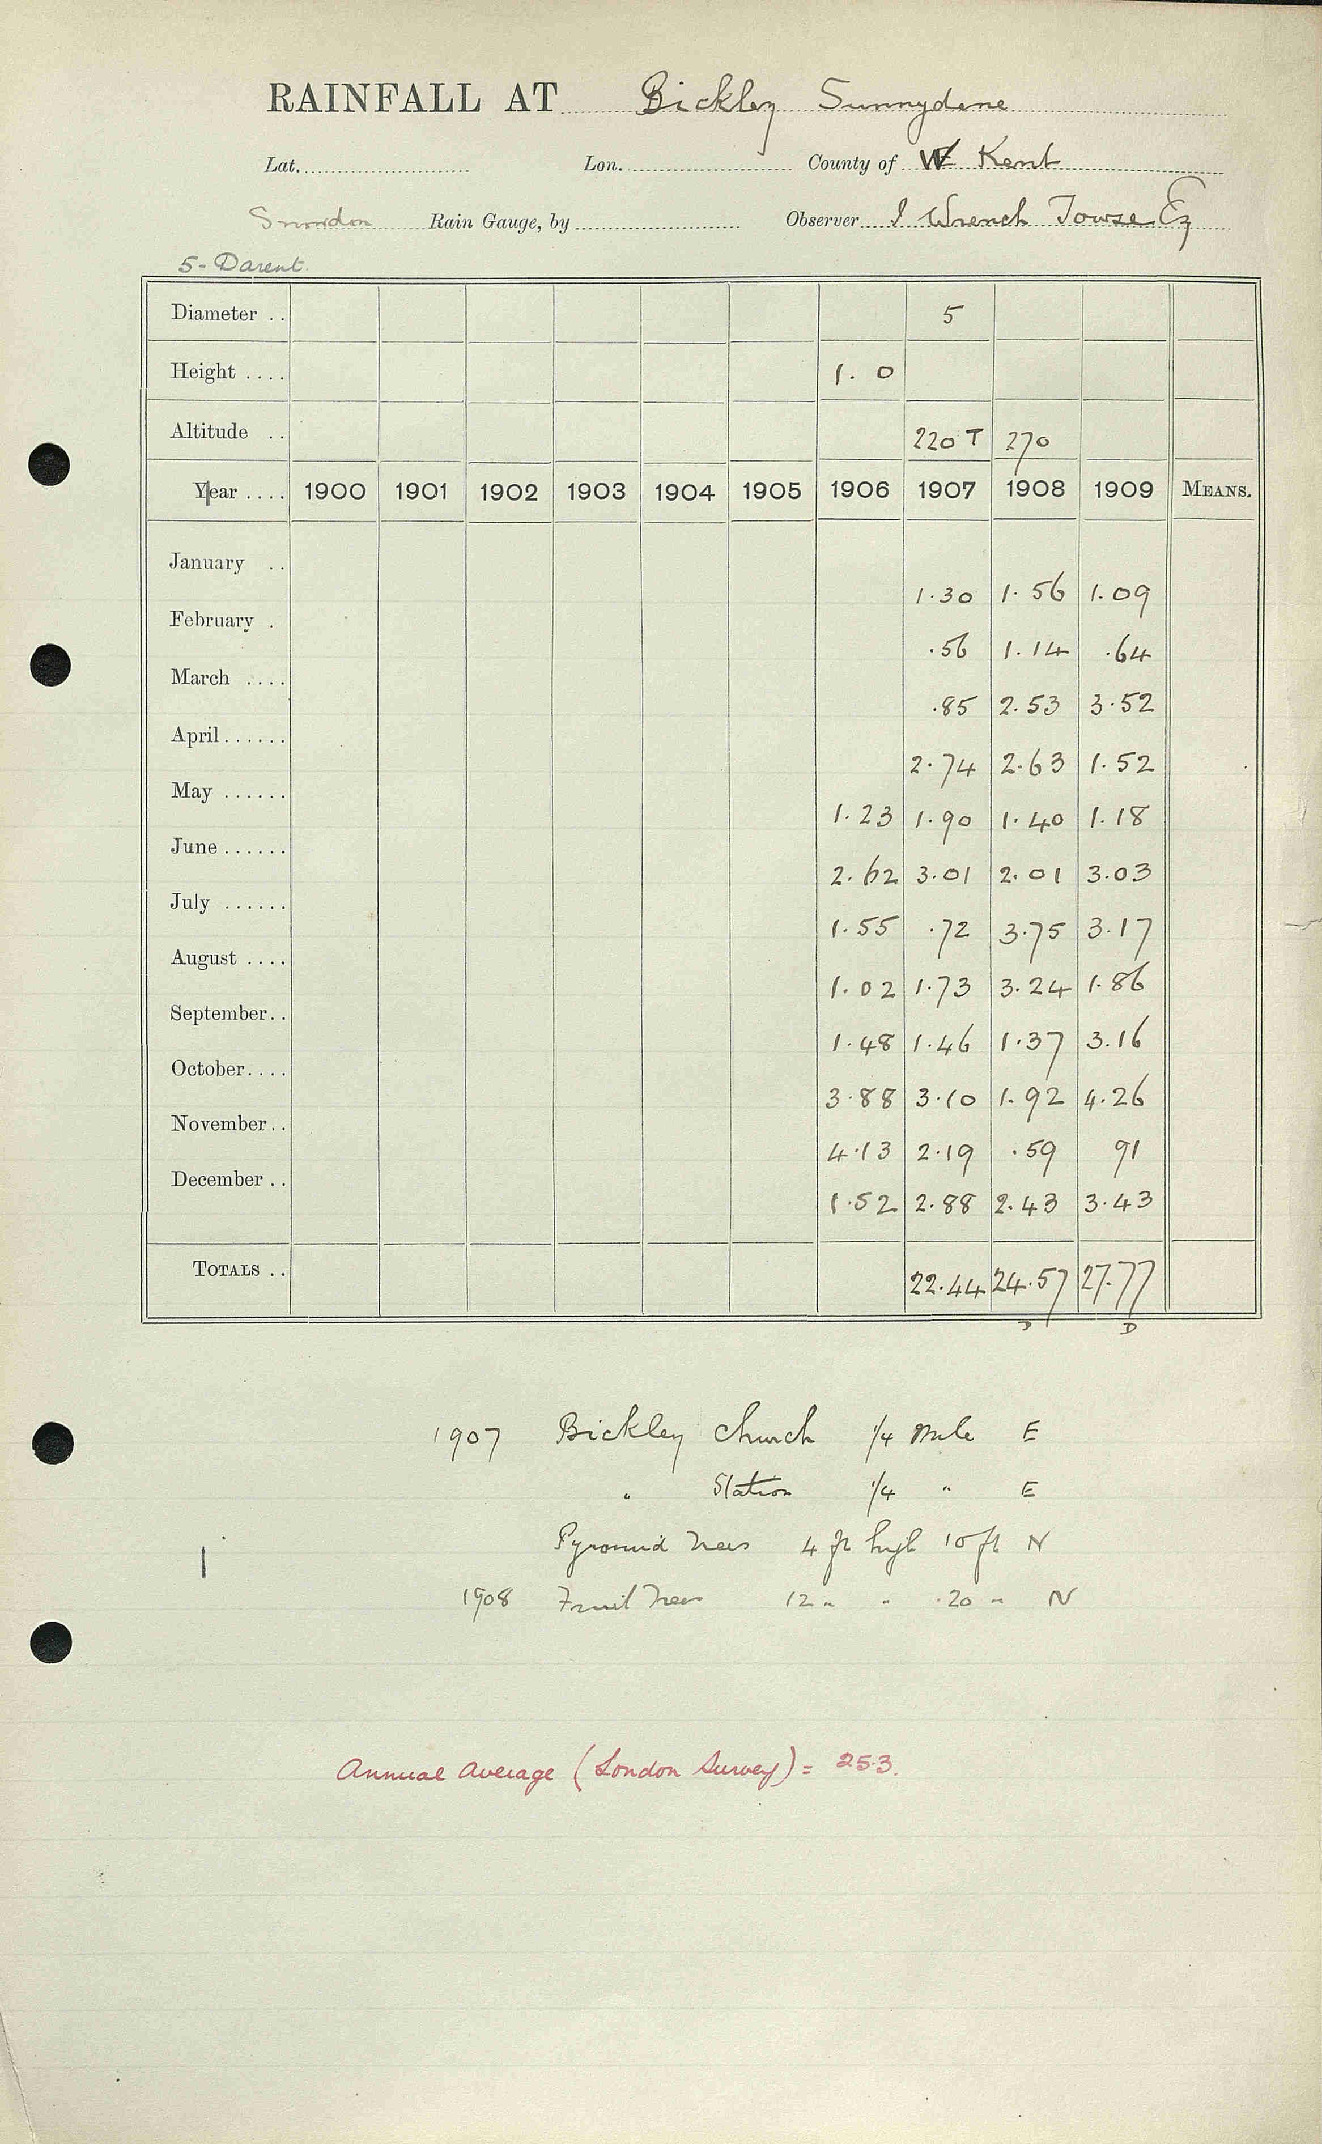 RAINFALL AT Bickley Sunnydene
Lat. Lon. County of W Kent
Snowdon Rain Gauge, by Observer J Wrench Towse Esq
5 - Darent.
Diameter .. 5
Height .... 1. 0
Altitude .. 220 T 270
Year .... 1900 1901 1902 1903 1904 1905 1906 1907 1908 1909 MEANS.
January .. 1.30 1.56 1.09
February . .56 1.14 .64
March .... .85 2.53 3.52
April...... 2.74 2.63 1.52
May ...... 1.23 1.90 1.40 1.18
June ...... 2.62 3.01 2.01 3.03
July ...... 1.55 .72 3.75 3.17
August .... 1.02 1.73 3.24 1.86
September.. 1.48 1.46 1.37 3.16
October.... 3.88 3.10 1.92 4.26
November.. 4.13 2.19 .59 91
December .. 1.52 2.88 2.43 3.43
TOTALS .. 22.44 24.57 27.77
D D
1907 Bickley Church 1/4 Mile E
" Station 1/4 " E
Pyramid Trees 4 ft high 10 ft N
1908 Fruit Trees 12 " " 20 " N
Annual Average (London Survey) = 25.3.